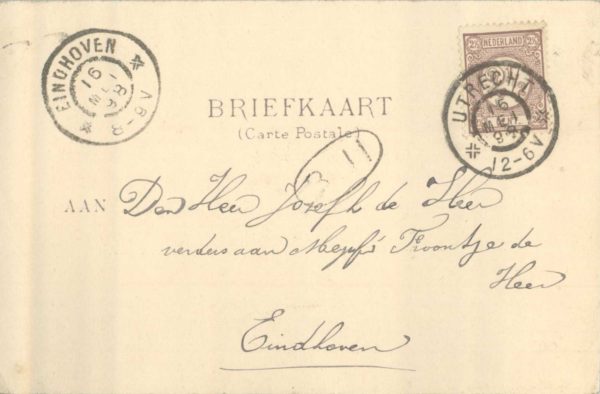 EINDHOVEN
16
MEI
98
6-8V
2½ NEDERLAND 2½
UTRECHT
16
MEI
98
12-6V
BRIEFKAART
(Carte Postale)
11
AAN Den Heer Jozef de Heer
verders aan Troontje de
Heer
Eindhoven